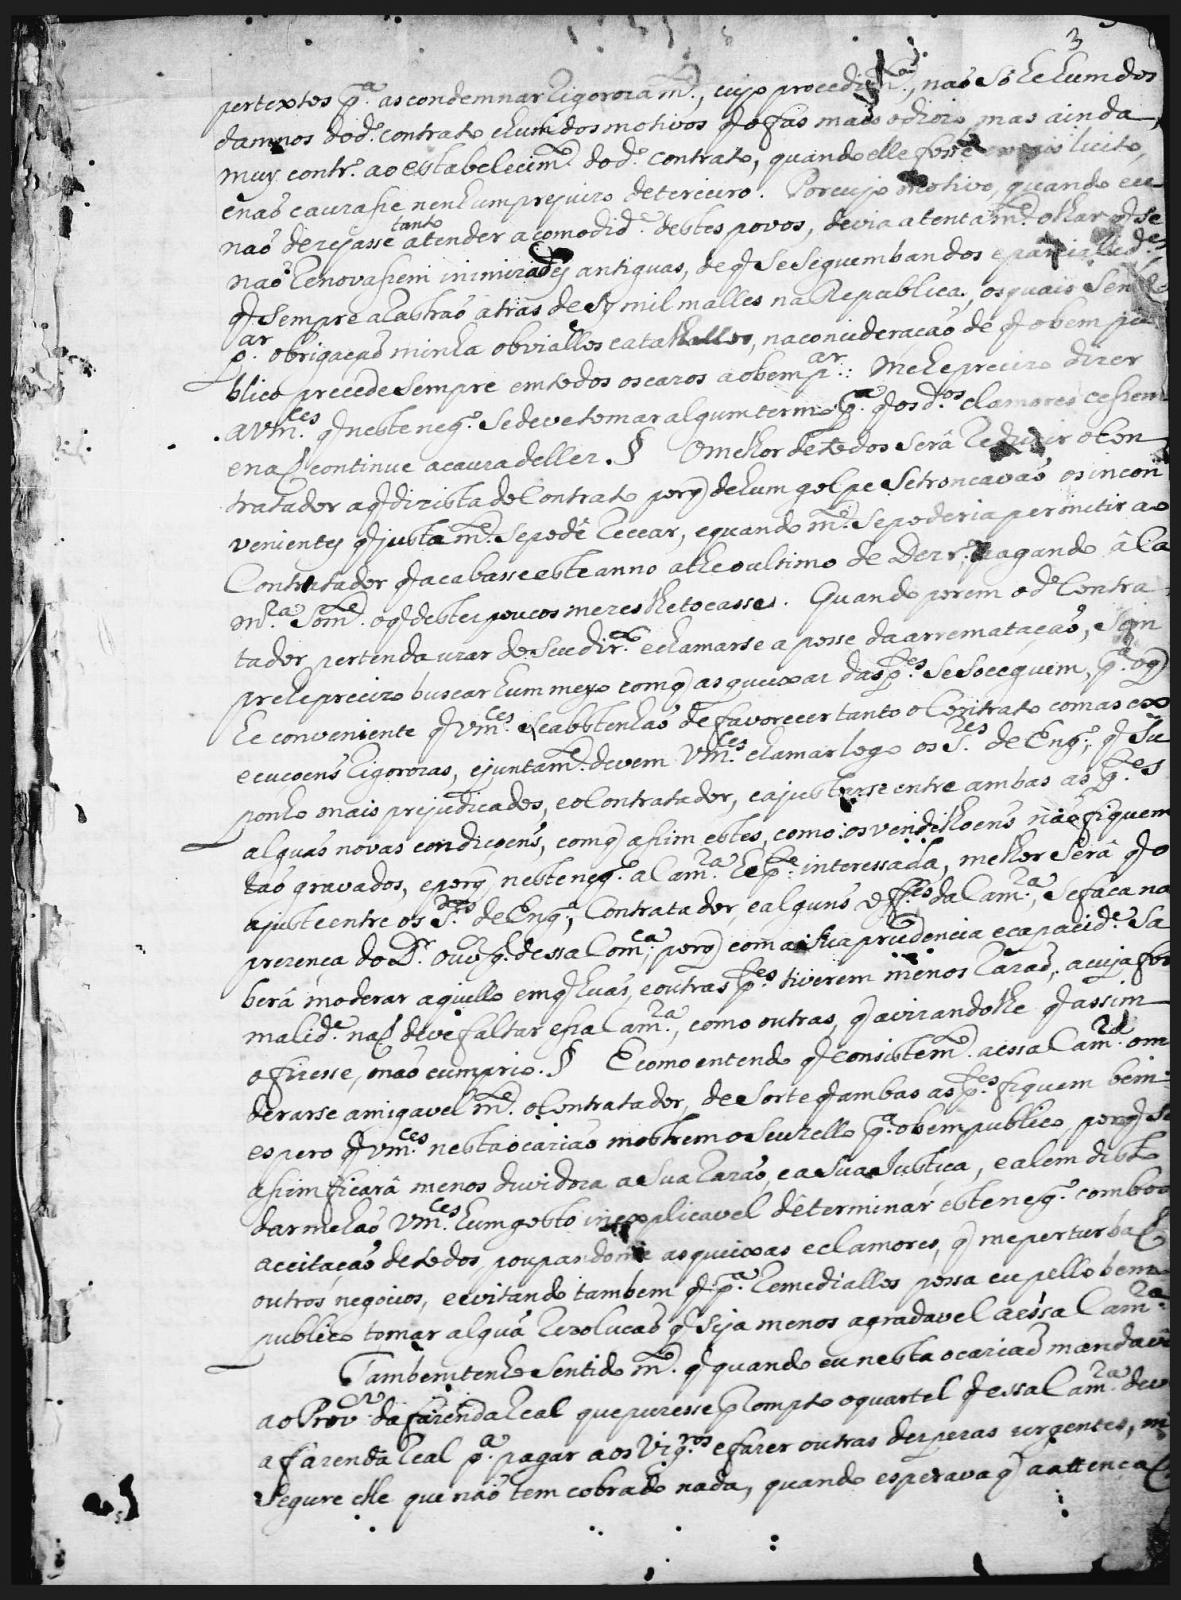 3
pertextos p.ª as condemnar rigorozam.te, cujo procedim.to, não só he hum dos
damnos do d.º contrato e hum dos motivos q̃ o fas mais odiozo mas ainda
muy contr.º ao estabelecim.to do d.º contrato, quando elle fosse licito,
e não cauzasse nenhum prejuizo de terceiro. Por cujo motivo, quando eu
não dezejasse tanto atender a comodid.e destes povos, devia atentam.te olhar q̃ se
não renovassem inimizades antiguas, de q̃ se seguem bandos e parcialid.es
q̃ sempre arrastrão atras de sy mil malles na Republica, os quais sen
do obrigação minha obvialles e atalhallos, na concideração de q̃ o bem pu
blico precede sempre em todos os cazos ao bem p.ar: Me he precizo dizer
a Vm.ces q̃ neste neg.º se deve tomar algum termo p.ª q̃ os d.os clamores cessem
e não continue a cauza delles. § O melhor de todos será reduzir o Con
tratador a q̃ dizista do Contrato porq̃ de hum golpe se troncavão os incon
venientes q̃ justam.te se pode recear, e quando m.to se poderia permitir ao
Contratador q̃ acabasse este anno athe o ultimo de Dezr.º pagando á Ca
m.ra som.te o q̃ destes poucos mezes lhe tocasse. Quando porem o d.º Contra
tador pertenda uzar do seu dir.to e clamarse a posse da arrematação, sem
pre he precizo buscar hum meyo com q̃ as queixas das p.es se socequem, p.ª o q̃
he conveniente q̃ Vm.ces se abstenhão de favorecer tanto o Contrato com as ex
ecucoens rigorozas, e juntam.te devem Vm.ces chamar logo os S.res de Eng.º, q̃ su
ponho mais prejudicados, e o Contratador, e ajustarse entre ambas as p.es
alguas novas condiçoens, com q̃ assim estes, como os vendilhoens não fiquem
tão gravados, e porq̃ neste neg.º a Cam.ra he p.te interessada, melhor será q̃ o
ajuste entre os S.res de Eng.º, Contratador, e alguns off.es da Cam.ra, se faça na
prezença do D.r Ouv.or g.l dessa Com.ca, porq̃ com a sua prudencia e capacid.e sa
berá moderar aquello em q̃ huas, e outras p.es tiverem menos razão, a cuja for
malid.e não deve faltar essa Cam.ra, como outras, q̃ avizandolhe q̃ assim
o fizesse, o não cumprio. § E como entendo q̃ consistem.te a essa Cam.ra om
derarse amigavelm.te o Contratador, de sorte q̃ ambas as p.es fiquem bem
espero q̃ Vm.ces nesta ocazião mostrem o seu zello p.ª o bem publico, porq̃ se
assim ficará menos duvidoza a sua razão, e a sua Justiça, e alem disto
darmehão Vm.ces hum gosto inexplicavel determinar este neg.º com boa
aceitação de todos, poupandome as queixas e clamores, q̃ me perturbão
outros negocios, e evitando tambem q̃ p.ª remedialles possa eu pello bem
publico tomar algua rezolução q̃ seja menos agradavel a essa Cam.ra
Tambem tenho sentido m.to q̃ quando eu nesta ocazião mandava
ao Prov.or da fazenda Real que puzesse prompto o quartel q̃ essa Cam.ra deve
a fazenda Real p.ª pagar aos Vig.ros e fazer outras despezas urgentes, m
segure elle que não tem cobrado nada, quando esperava q̃ a attenção